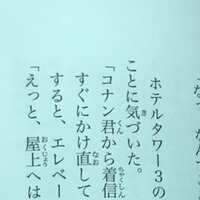 なって、な
ホテルタワー3の
ことに気づいた。
「コナン君から着信
すぐにかけ直して
すると、エレベー
「えっと、屋上へは